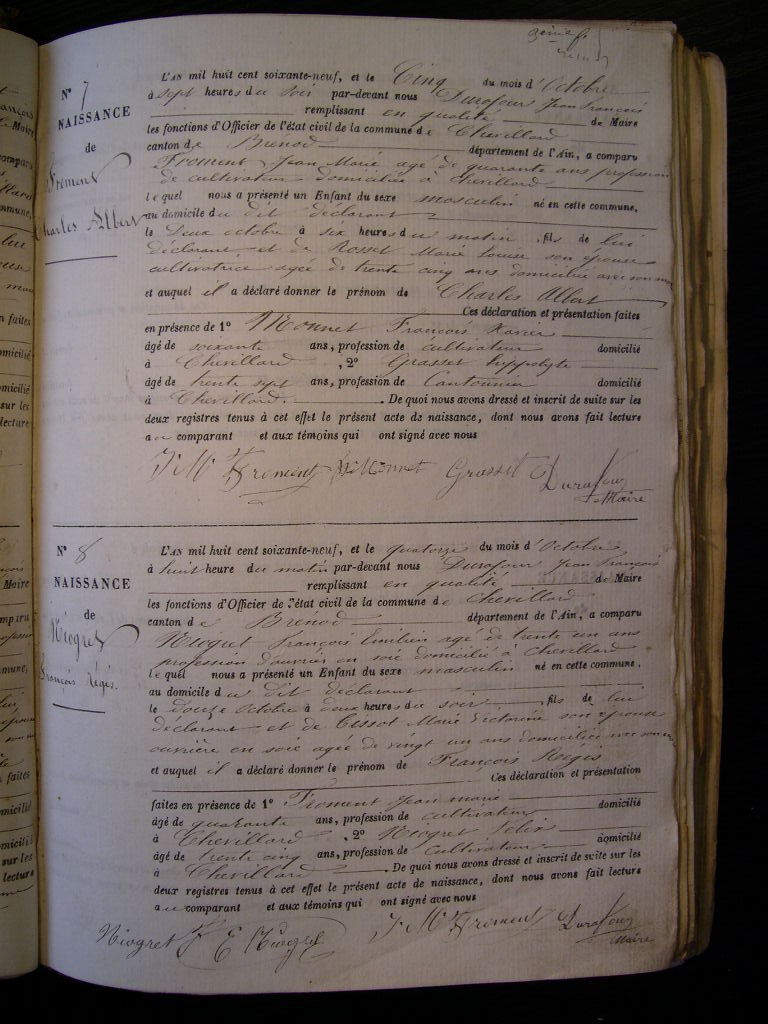 N° 7
NAISSANCE
de
Froment
Charles Albert
L'AN mil huit cent soixante-neuf, et le Cinq du mois d'Octobre
à sept heures du soir par-devant nous Durafour Jean François
remplissant en qualité de Maire
les fonctions d'Officier de l'état civil de la commune de Chevillard
canton de Brénod département de l'Ain, a comparu
Froment Jean Marie agé de quarante ans profession
de cultivateur domicilié à Chevillard
lequel nous a présenté un Enfant du sexe masculin né en cette commune,
au domicile du dit déclarant
le Deux octobre à six heures du matin, fils de lui
déclarant et de Rosset Marie Louise son épouse
cultivatrice agée de trente cinq ans domiciliée avec son mari
et auquel il a déclaré donner le prénom de Charles Albert
Ces déclaration et présentation faites
en présence de 1° Monnet François Xavier
âgé de soixante ans, profession de cultivateur domicilié
à Chevillard, 2° Grasset hippolyte
âgé de trente sept ans, profession de Cantonnier domicilié
à Chevillard. De quoi nous avons dressé et inscrit de suite sur les
deux registres tenus à cet effet le présent acte de naissance, dont nous avons fait lecture
au comparant et aux témoins qui ont signé avec nous
J M Froment Monnet Grasset Durafour
Maire
N° 8
NAISSANCE
de
Niogret
François Régis.
L'AN mil huit cent soixante-neuf, et le quatorze du mois d'Octobre
à huit heure du matin par-devant nous Durafour Jean François
remplissant en qualité de Maire
les fonctions d'Officier de l'état civil de la commune de Chevillard
canton de Brénod département de l'Ain, a comparu
Niogret François Emilien agé de trente un ans
profession d'ouvrier en soie domicilié à Chevillard
lequel nous a présenté un Enfant du sexe masculin né en cette commune,
au domicile du dit déclarant
le douze Octobre à deux heures du soir, fils de lui
déclarant et de Tissot Marie Victorine son épouse
ouvrière en soie agée de vingt un ans domiciliée avec son mari
et auquel il a déclaré donner le prénom de François Régis
Ces déclaration et présentation
faites en présence de 1° Froment Jean marie
âgé de quarante ans, profession de cultivateur domicilié
à Chevillard, 2° Niogret Félix
âgé de trente cinq ans, profession de cultivateur domicilié
à Chevillard. De quoi nous avons dressé et inscrit de suite sur les
deux registres tenus à cet effet le présent acte de naissance, dont nous avons fait lecture
au comparant et aux témoins qui ont signé avec nous
Niogret F E Niogret J M Froment Durafour
Maire